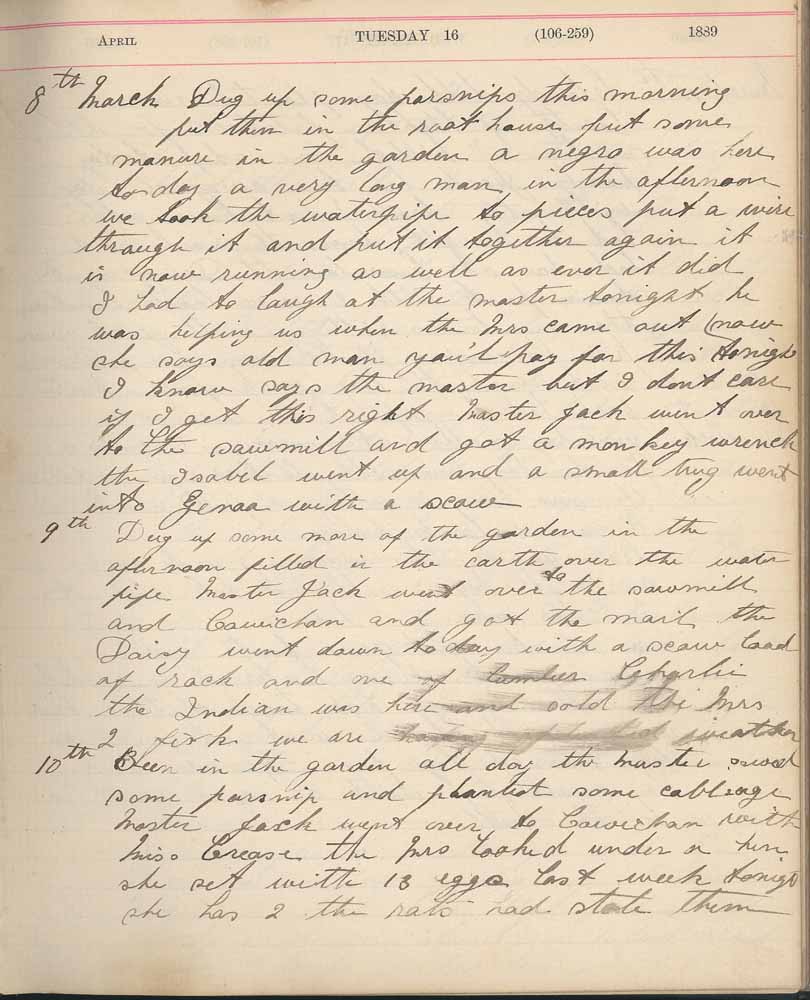 APRIL TUESDAY 16 (106-259) 1889
8th March Dug up some parsnips this morning
put them in the root house put some
manure in the garden a negro was here
to day a very long man in the afternoon
we took the waterpipe to pieces put a wire
through it and put it together again it
is now running as well as ever it did
I had to laugh at the master tonight he
was helping us when the Mrs came out (now
she says old man you'l pay for this tonight
I know says the master but I dont care
if I get this right Master Jack went over
to the sawmill and got a monkey wrench
the Isabel went up and a small tug went
into Genoa with a scow
9th Dug up some more of the garden in the
afternoon filled in the earth over the water
pipe Master Jack went over to the sawmill
and Cowichan and got the mail the
Daisy went down to day with a scow load
of rock and one of lumber Charlie
the Indian was here and sold the Mrs
2 fish we are having splendid weather
10th Been in the garden all day the Master sowed
some parsnip and planted some cabbage
Master Jack went over to Cowichan with
Miss Crease the Mrs looked under a hen
she set with 13 eggs last week tonight
she has 2 the rats had stole them